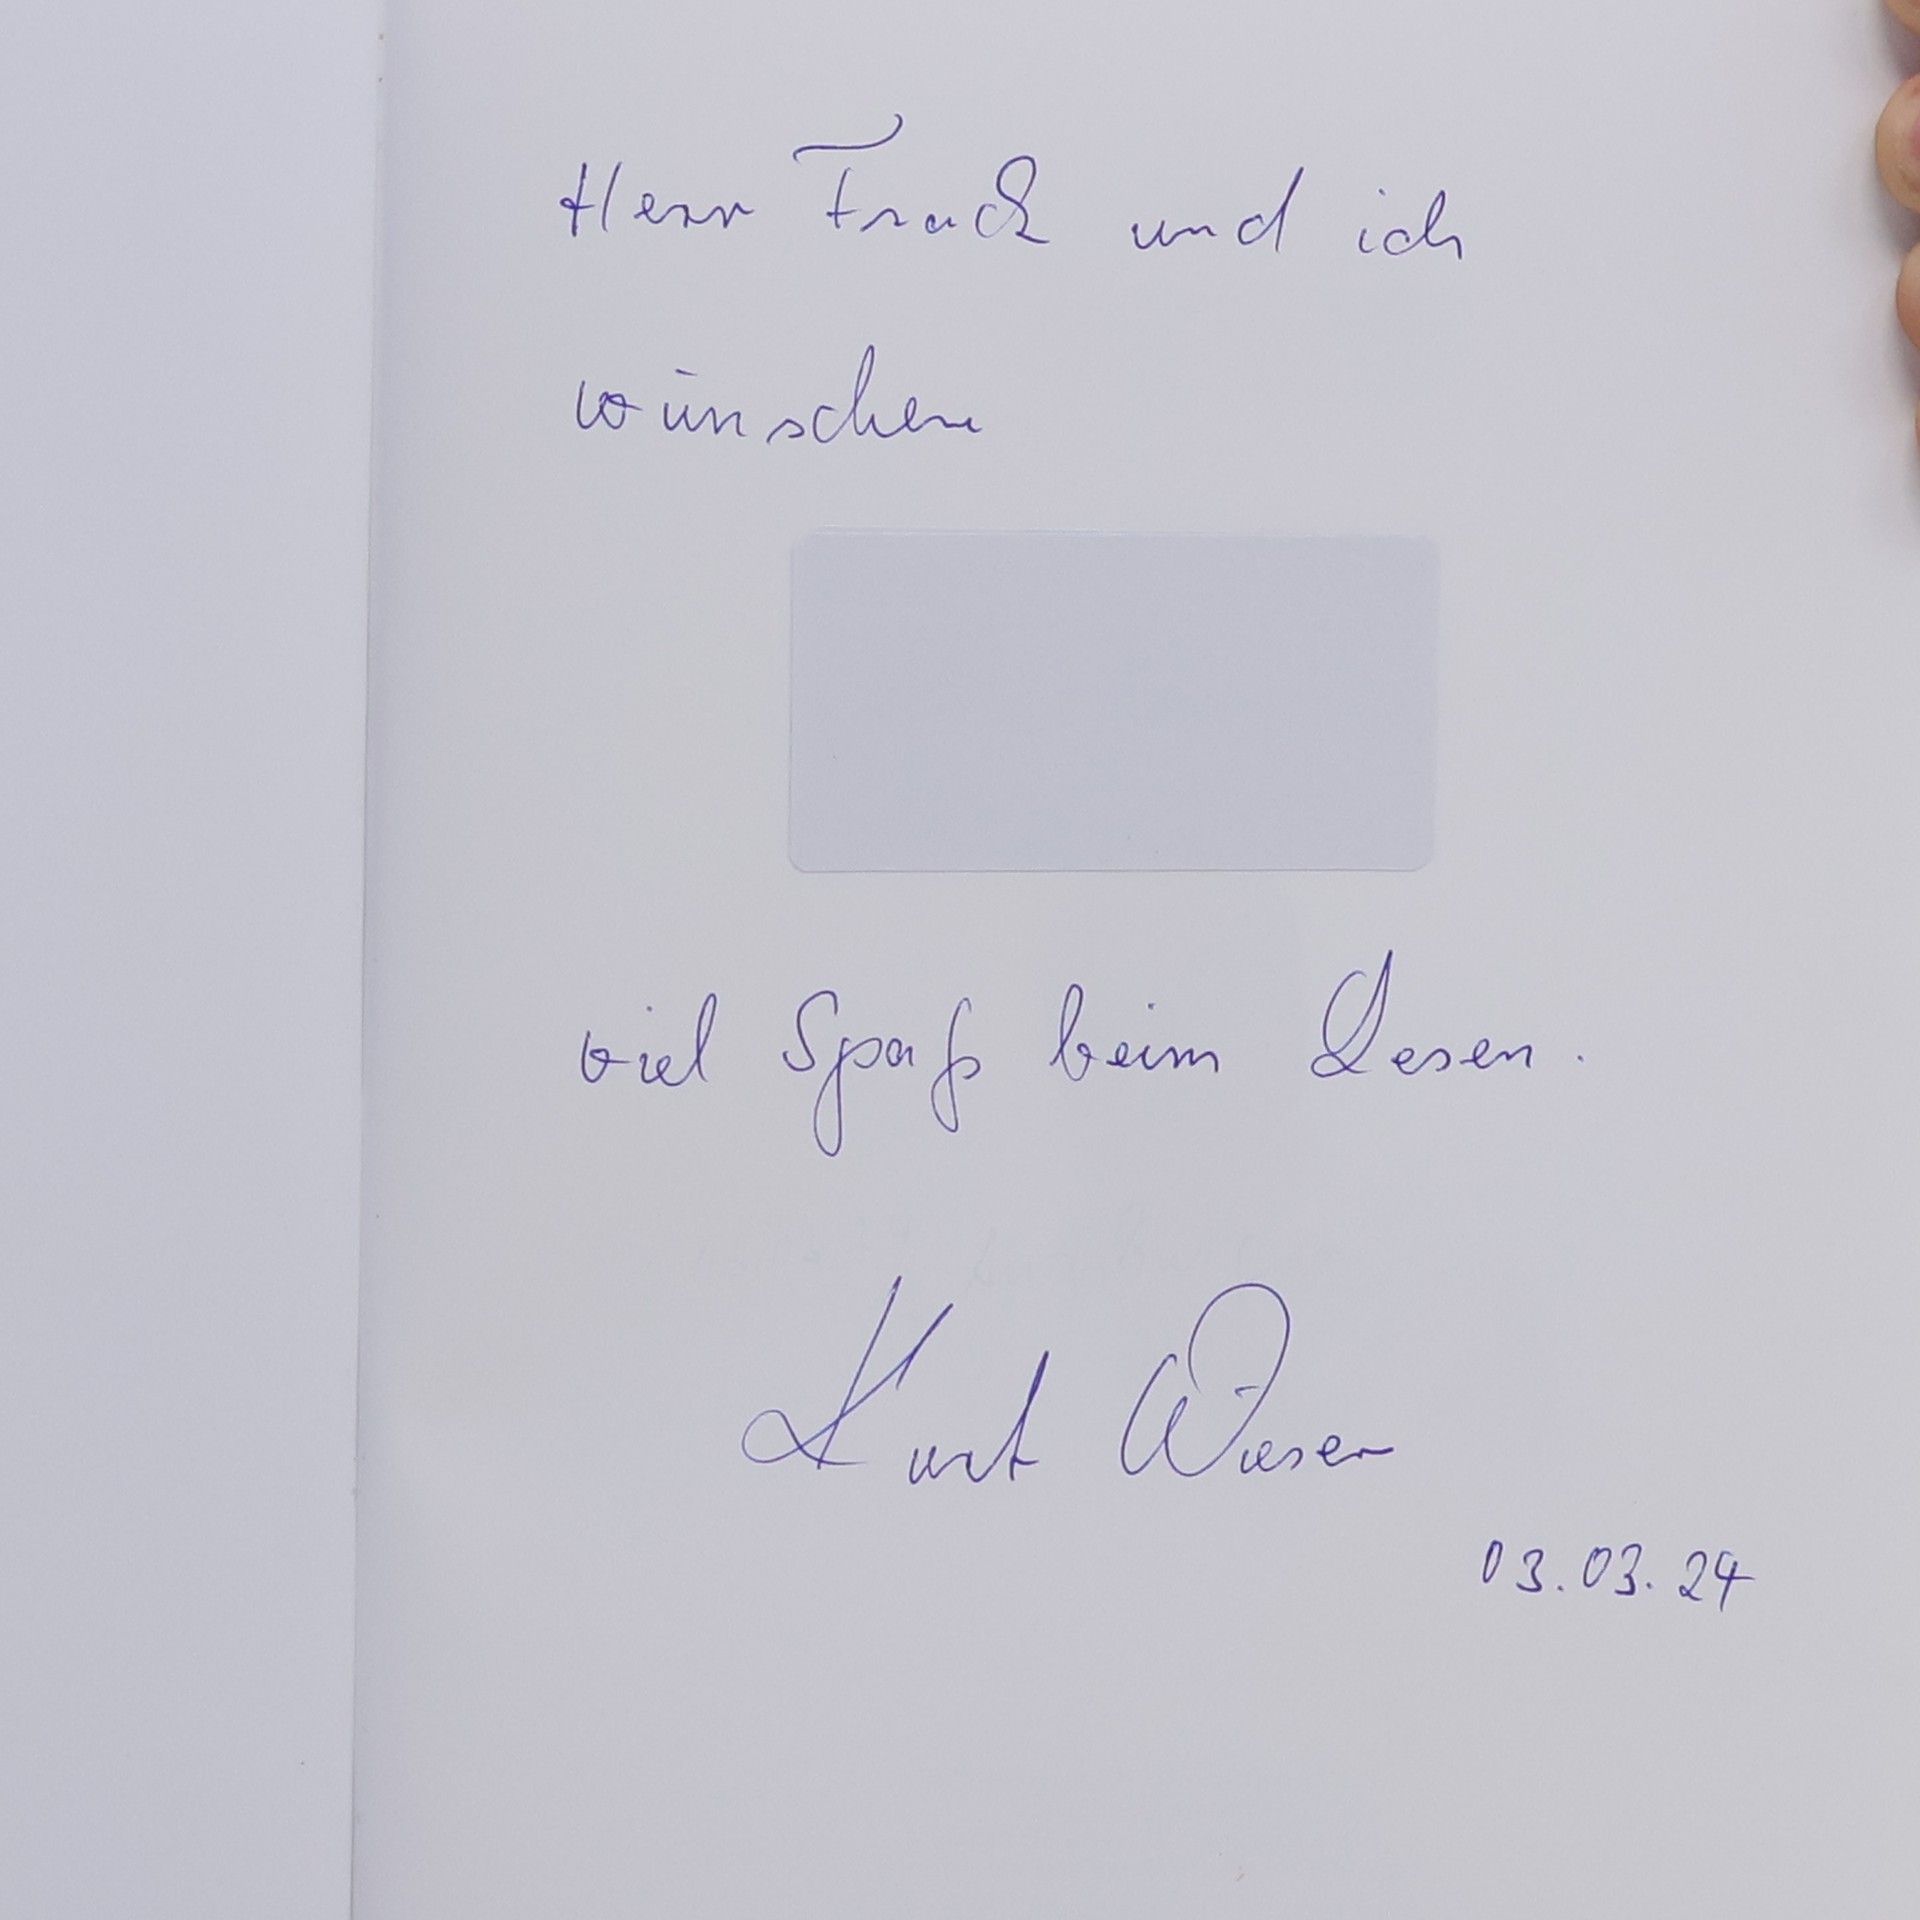 Herr Frack und ich
wünschen
viel Spaß beim Lesen.
Kurt Wieser
03.03.24